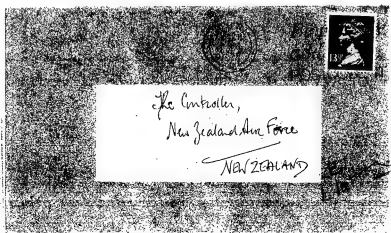 13P
The Controller,
New Zealand Air Force
NEW ZEALAND